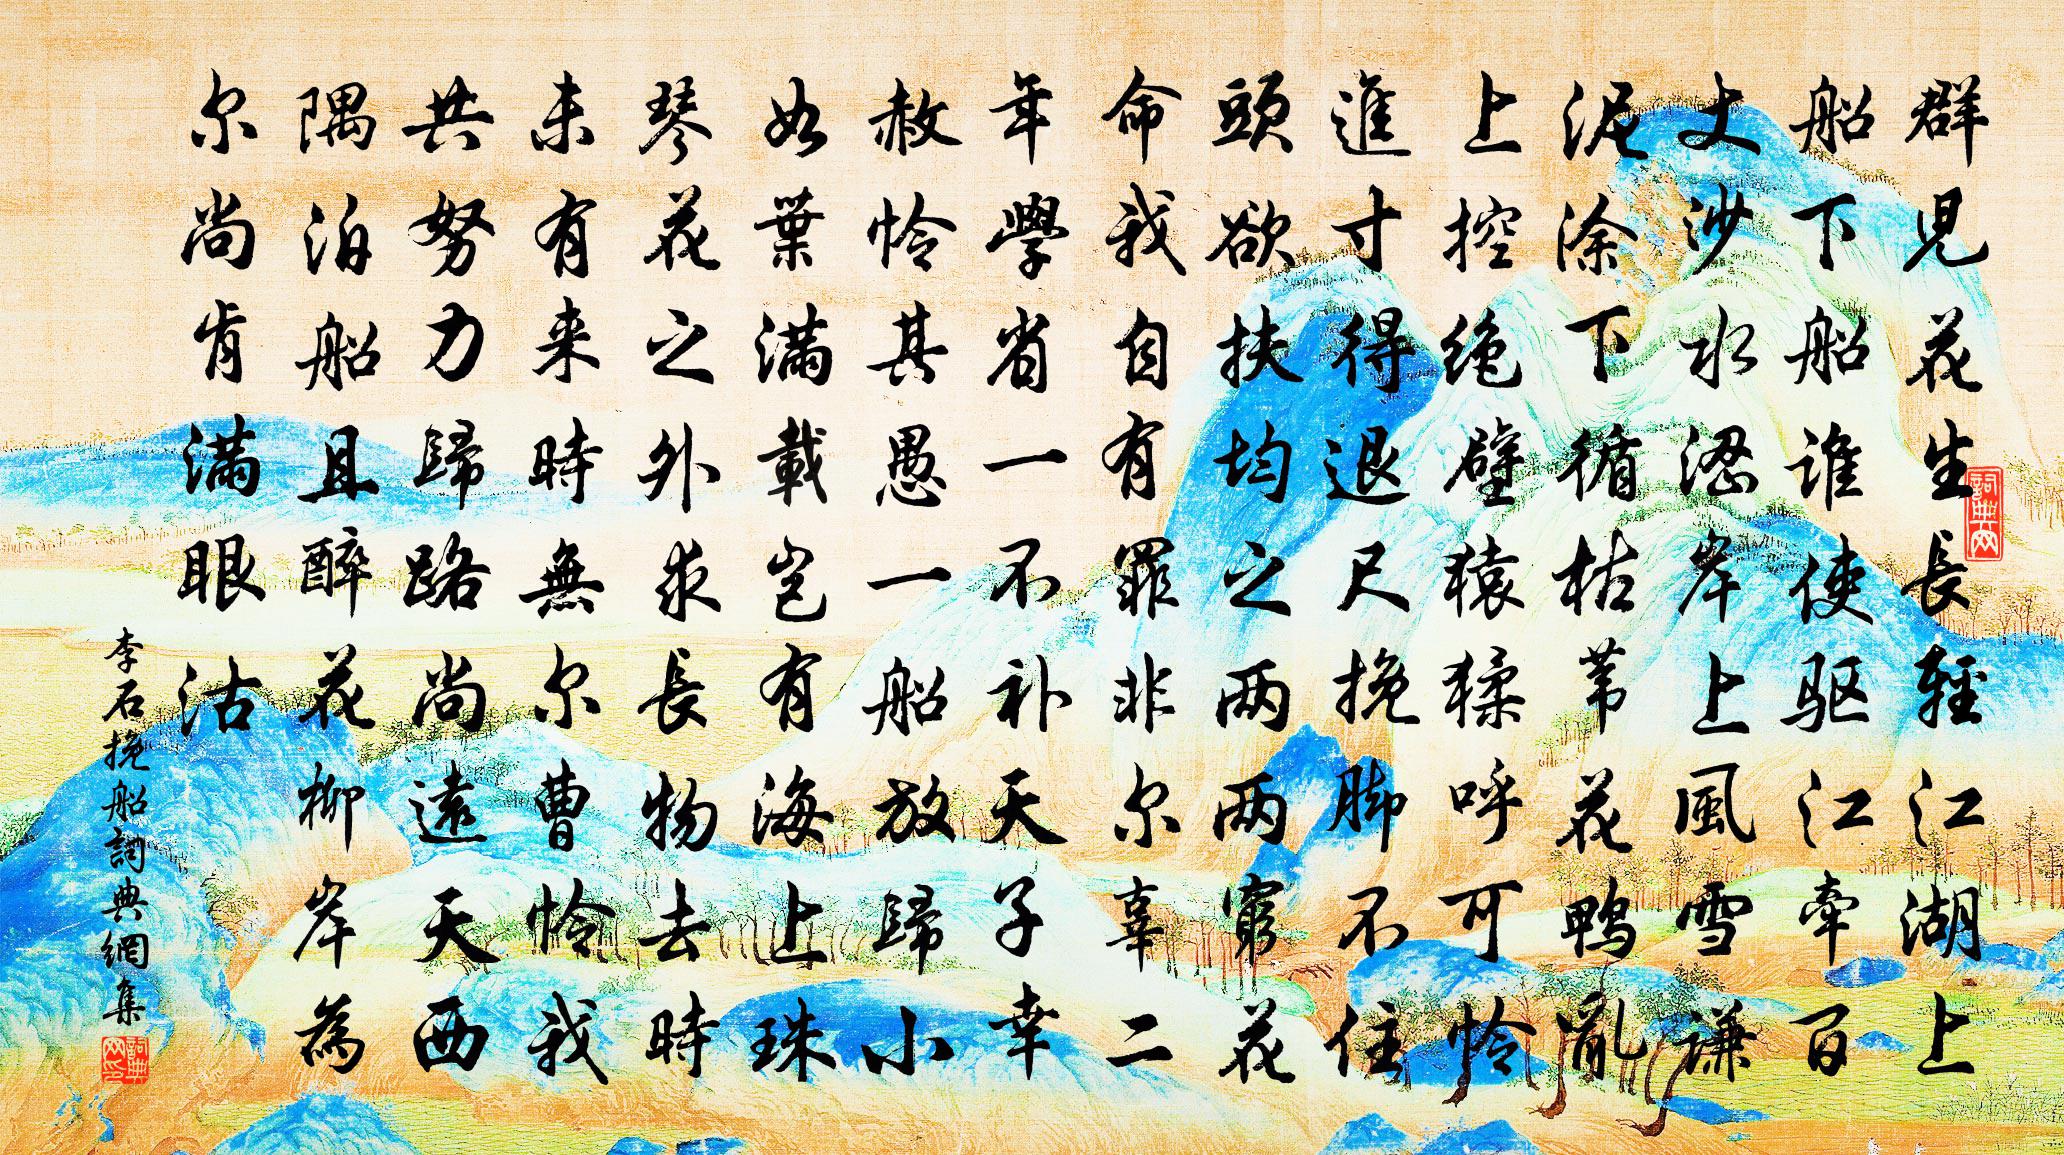 群児花生長輕江湖上
船下船誰使驱江牵百
丈沙水涩岸上風雪谦
泥涂下循枯苇花鸭亂
上控绝壁猿猱呼可怜
進寸得退尺挽脚不住
頭欲扶均之两两窮花
命我自有罪非尔辜二
年學省一不补天子幸
赦怜其愚一船放歸小
如葉满載岂有海上珠
琴花之外求長物去時
未有来時無尔曹怜我
共努力歸路尚遠天西
隅泊船且醉花柳岸為
尔尚肯满眼沽
李石挽船詞典網集
詞典网
詞典网印